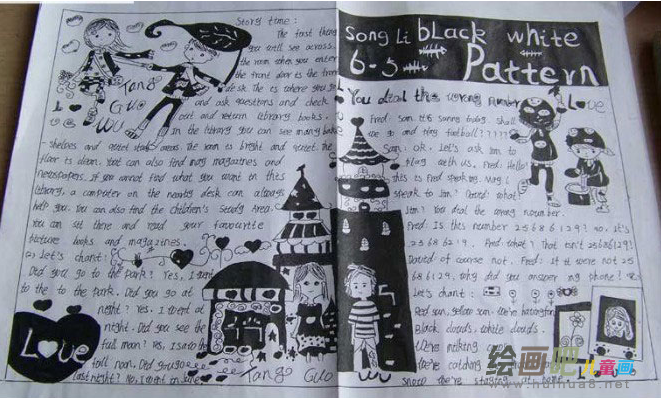 Story time:
The first thing
you will see across
the room when you enter
the front door is the front
desk. The is where you go
and ask questions and check
out and return library books.
In the library you can see many books
shelves and quiet study areas. The room is bright and quiet. The
floor is clean. You can also find many magazines and
newspapers. If you cannot find what you want in this
library, a computer on the nearby desk can always
help you. You can also find the Children's Study Area.
You can sit there and read your favourite
picture books and magazines.
Let's chant:
Did you go to the park? Yes, I went
to the to the park. Did you go at
night? Yes. I went at
night. Did you see the
full moon? Yes, I saw the
full moon. Did you go
last night? No, I went in
Tang
Guo
Wu
Love
Tang Guo
Song Li black white
6-5 Pattern
You dial the wrong number
Love
Fred: Sam. It's sunny today. Shall
we go and play football?????
Sam: Ok. Let's ask Jim to
play with us. Fred: Hello!
this is Fred speaking. May I
speak to Jim? David: What!
Jim? You dial the wrong number.
Fred: Is this number 25686129? No. It's
25686219. Fred: What? That isn't 25686129!
David: of course not. Fred: If it were not 25
686129, why did you answer my phone?
Let's chant:
Red sun, yellow sun. We're having fun
Black clouds. White clouds.
We're making
We're catching
snow. We're staying at home.
Wu
绘画吧 儿童画
www.huihua8.net